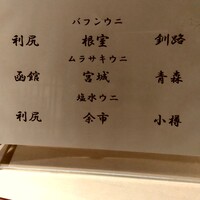 バフンウニ
利尻 根室 釧路
ムラサキウニ
函館 宮城 青森
塩水ウニ
利尻 余市 小樽